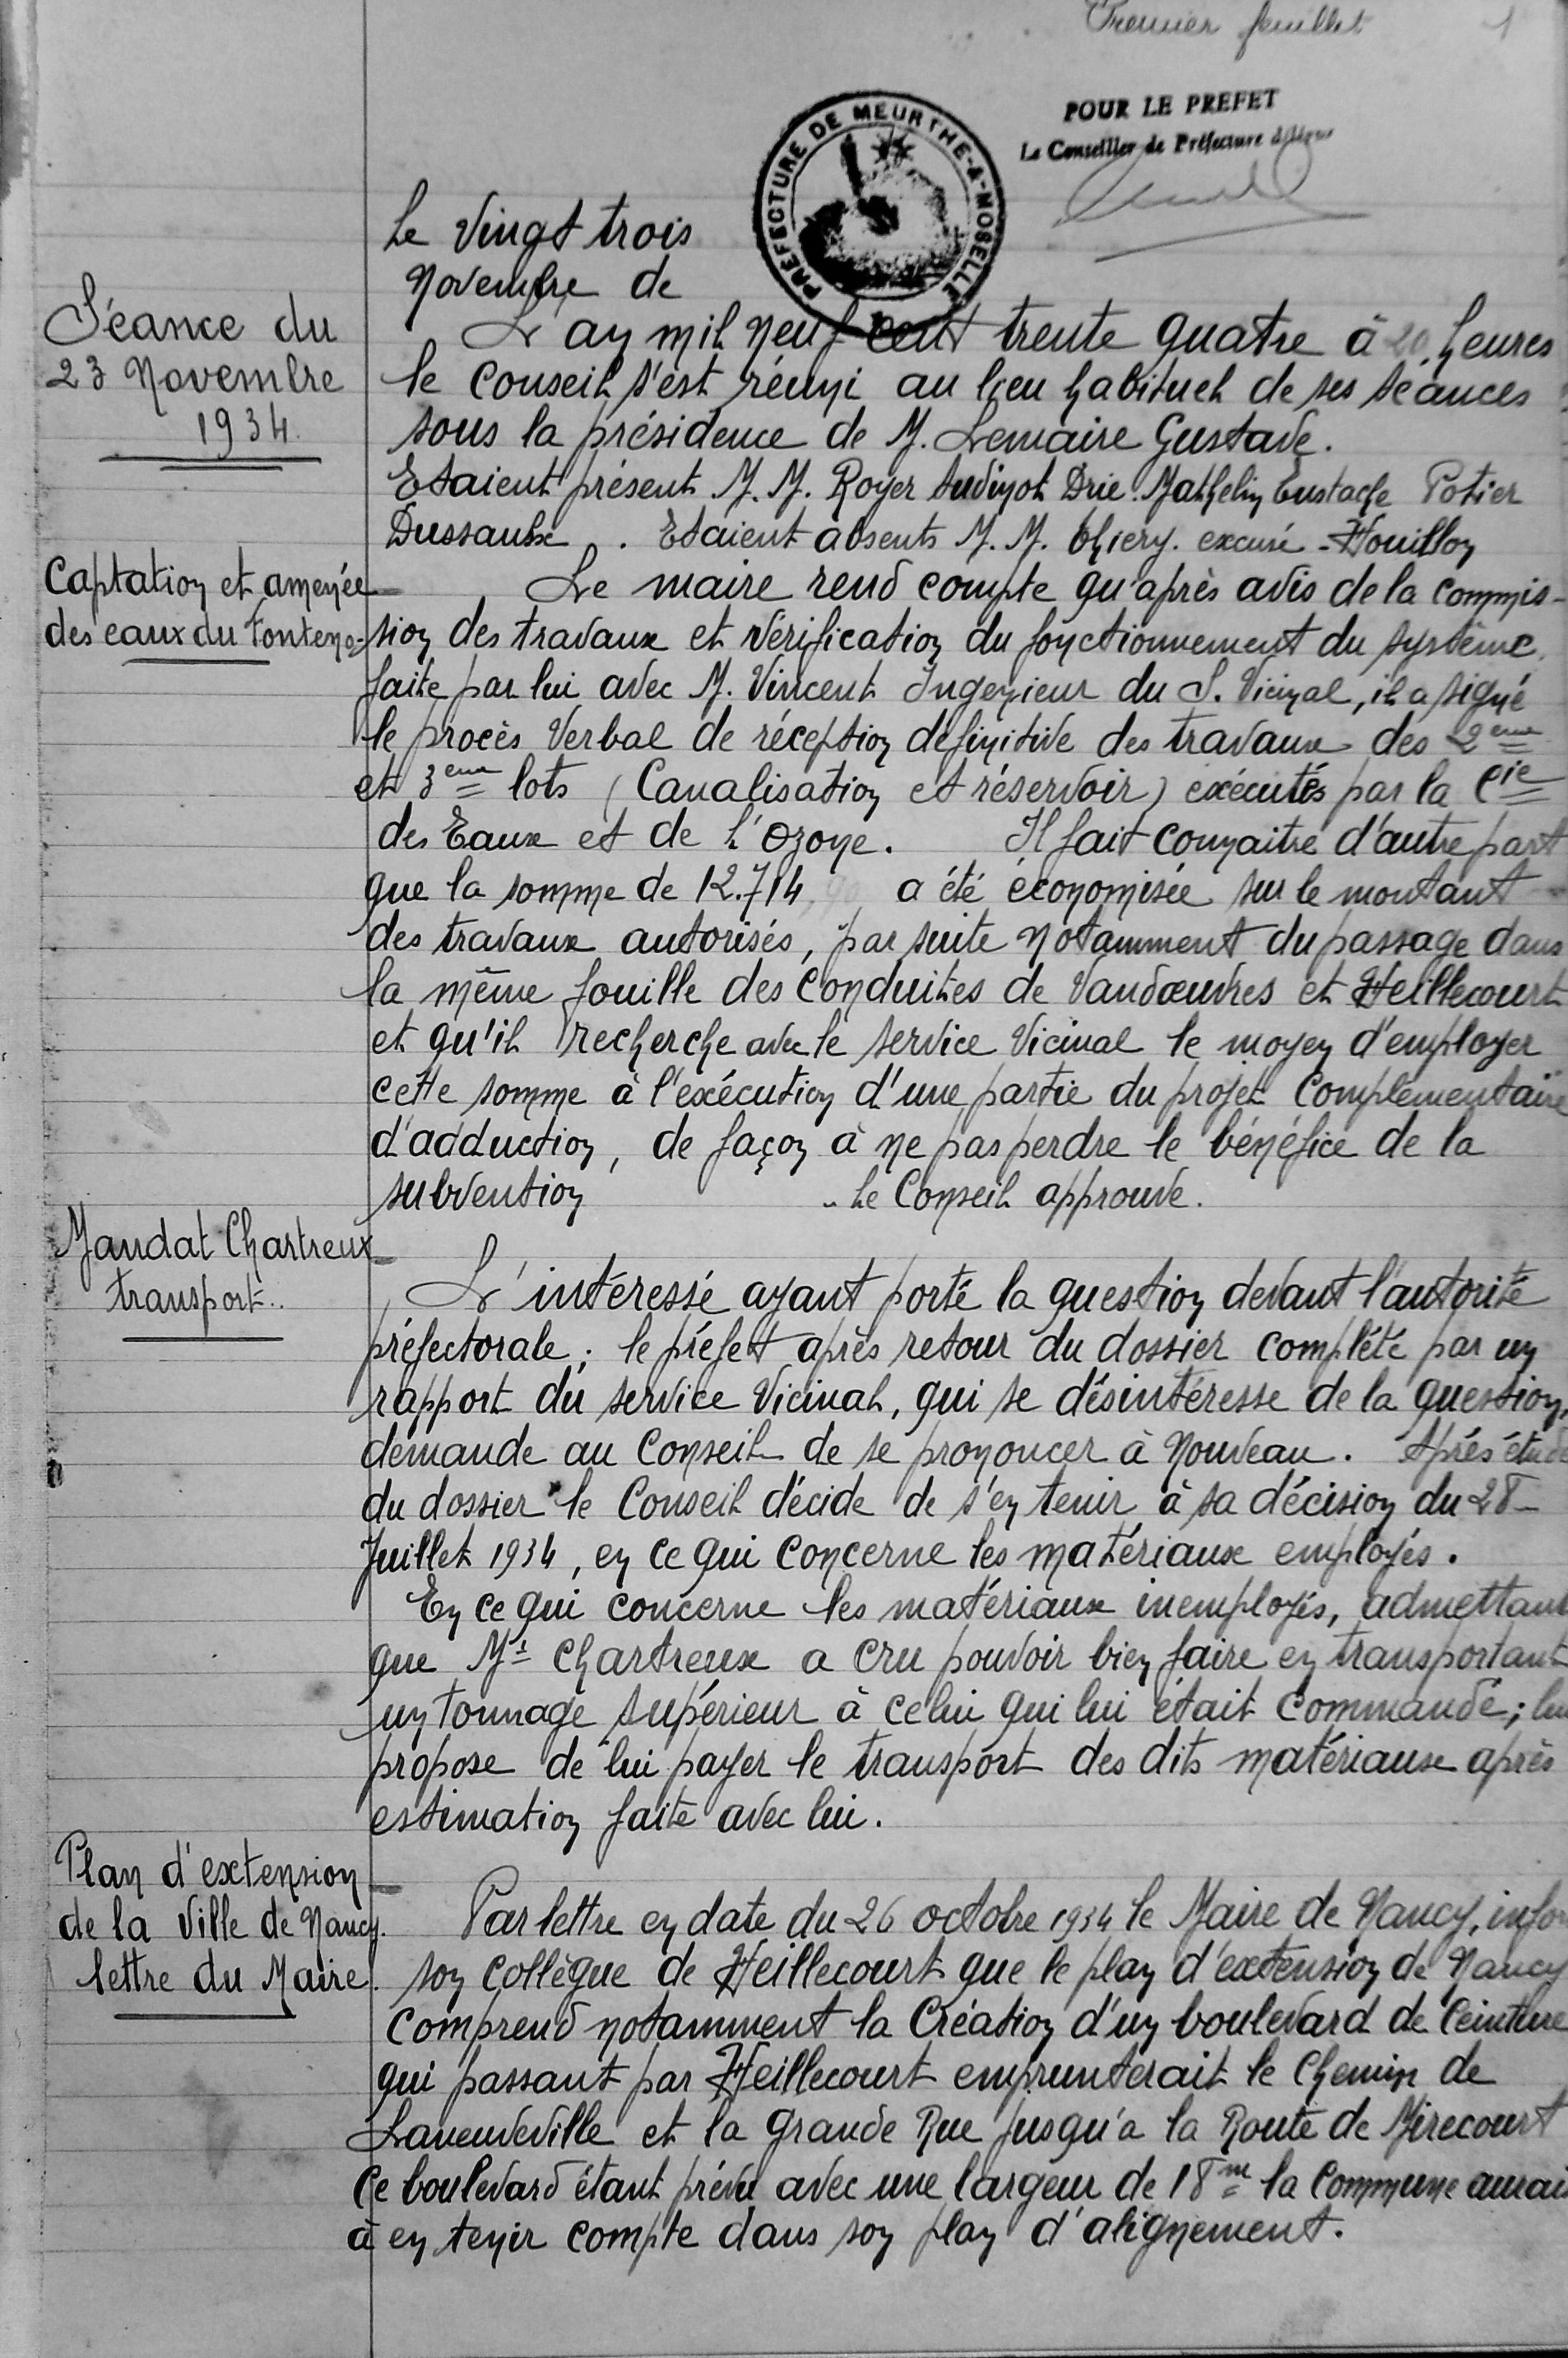 Premier feuillet 1
PREFECTURE DE MEURTHE-&-MOSELLE
POUR LE PREFET
Le Conseiller de Préfecture délégué
Le vingt trois
Novembre de
Séance du
23 Novembre
1934.
L'an mil neuf cent trente quatre à 20 heures
le conseil s'est réuni au lieu habituel de ses séances
sous la présidence de M. Lemaire Gustave.
Etaient présent M. M. Royer Audinot Drie. Mathelin Eustache Potier
Dussaulx . Etaient absents M. M. Thiery. excusé - Houillon
Captation et amenée
des eaux du Fonteno-
Le maire rend compte qu'après avis de la commis-
sion des travaux et vérification du fonctionnement du système
faite par lui avec M. Vincent Ingenieur du S. Vicinal, il a signé
le procès Verbal de réception définitive des travaux des 2eme
et 3eme lots (Canalisation et réservoir) exécutés par la Cie
des Eaux et de l'Ozone. Il fait connaitre d'autre part
que la somme de 12.714,90 a été économisée sur le montant
des travaux autorisés, par suite notamment du passage dans
la même fouille des conduites de Vandœuvres et Heillecourt
et qu'il recherche avec le service Vicinal le moyen d'employer
cette somme à l'exécution d'une partie du projet Complémentaire
d'adduction, de façon à ne pas perdre le bénéfice de la
subvention .. Le Conseil approuve.
Mandat Chartreux
transport..
L'intéressé ayant porté la question devant l'autorité
préfectorale ; le préfet après retour du dossier complété par un
rapport du service Vicinal, qui se désintéresse de la question,
demande au Conseil de se prononcer à nouveau. Après étude
du dossier le Conseil décide de s'en tenir à sa décision du 28
Juillet 1934, en ce qui concerne les matériaux employés.
En ce qui concerne les matériaux inemployés, admettant
que Mr Chartreux a cru pouvoir bien faire en transportant
un tonnage supérieur à celui qui lui était commandé ; lui
propose de lui payer le transport des dits matériaux après
estimation faite avec lui.
Plan d'extension
de la Ville de Nancy.
lettre du Maire.
Par lettre en date du 26 octobre 1934 le Maire de Nancy, infor
son collègue de Heillecourt que le plan d'extension de Nancy
comprend notamment la Création d'un boulevard de Ceinture
qui passant par Heillecourt emprunterait le Chemin de
Laneuveville et la Grande Rue jusqu'a la Route de Mirecourt
Ce boulevard étant prévu avec une largeur de 18m la Commune aurait
à en tenir compte dans son plan d'alignement.